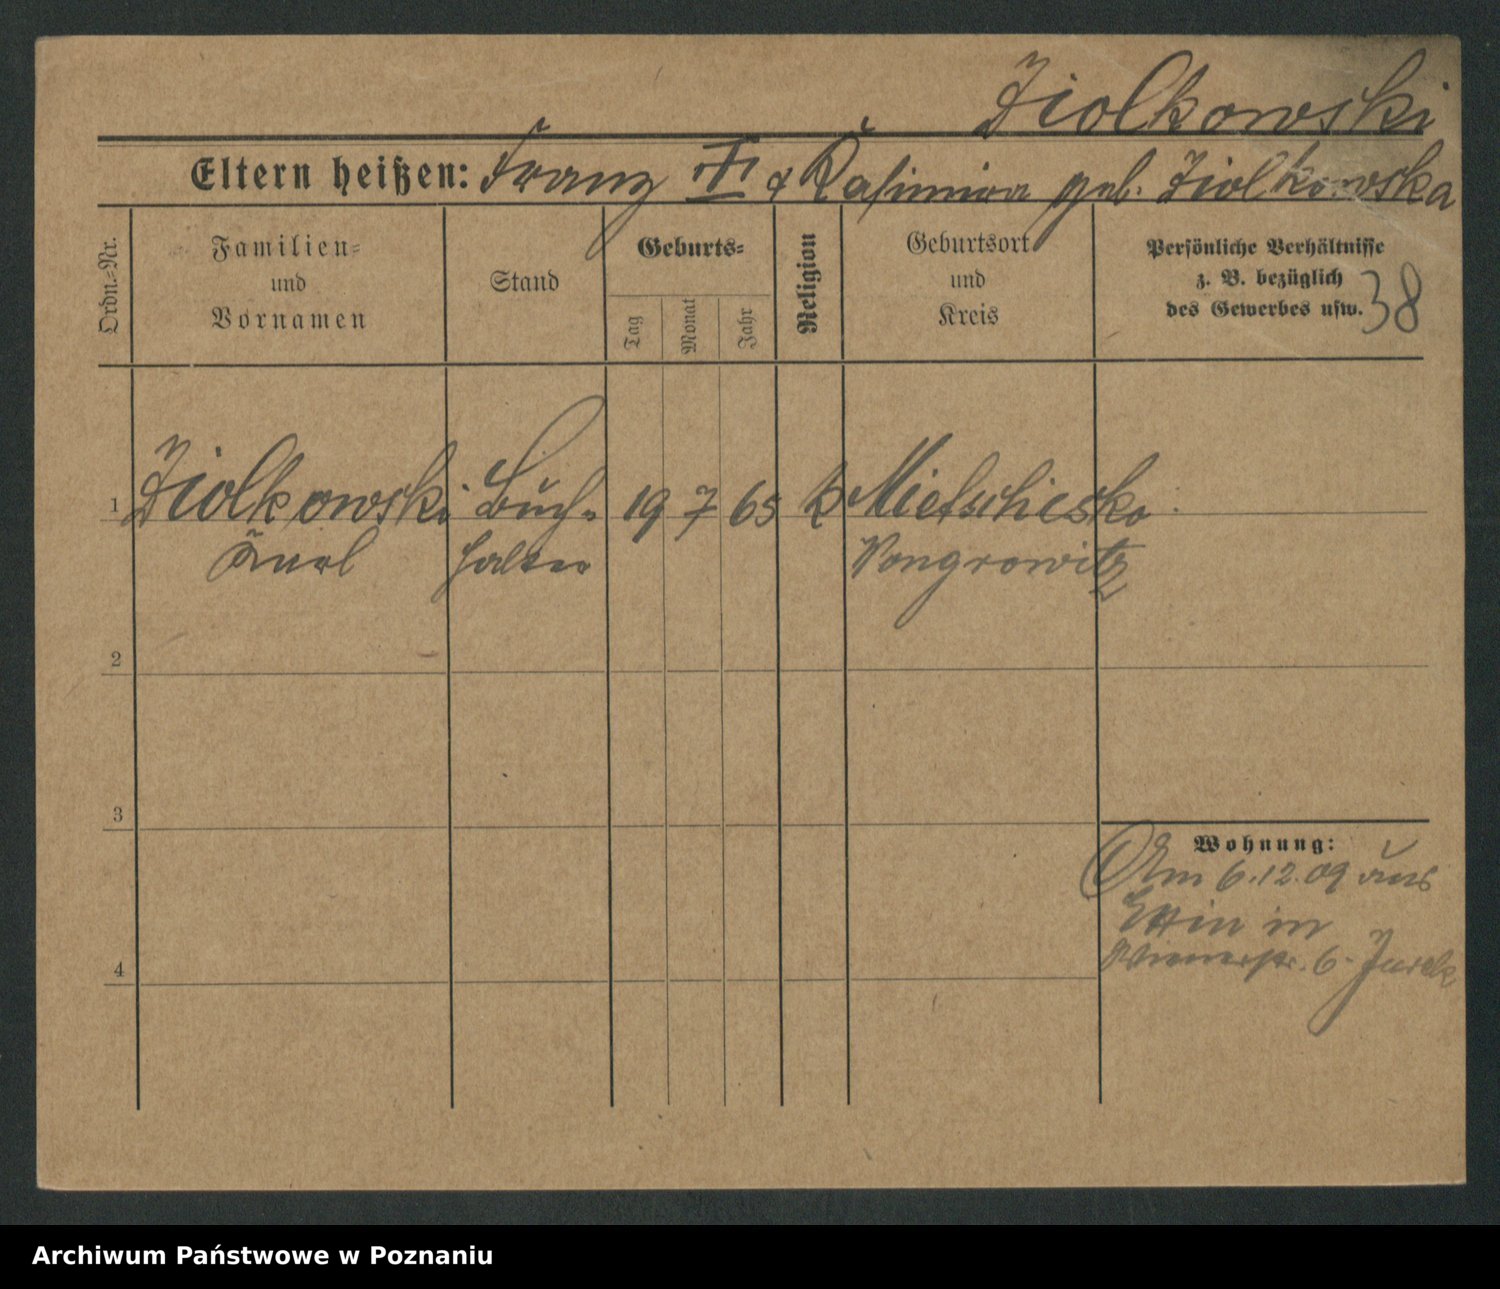 Ziolkowski
Eltern heißen: Franz & Kasimira geb. Ziolkowska
Ordn.-Nr.
Familien-
und
Vornamen
Stand
Geburts-
Tag
Monat
Jahr
Religion
Geburtsort
und
Kreis
Persönliche Verhältnisse
z. B. bezüglich
des Gewerbes usw.
38
1
Ziolkowski
Karl
Buch-
halter
19 7 65
k
Mietschisko
Wongrowitz
2
3
4
Wohnung:
Am 6.12.09 aus
in
6. Jurek
Archiwum Państwowe w Poznaniu